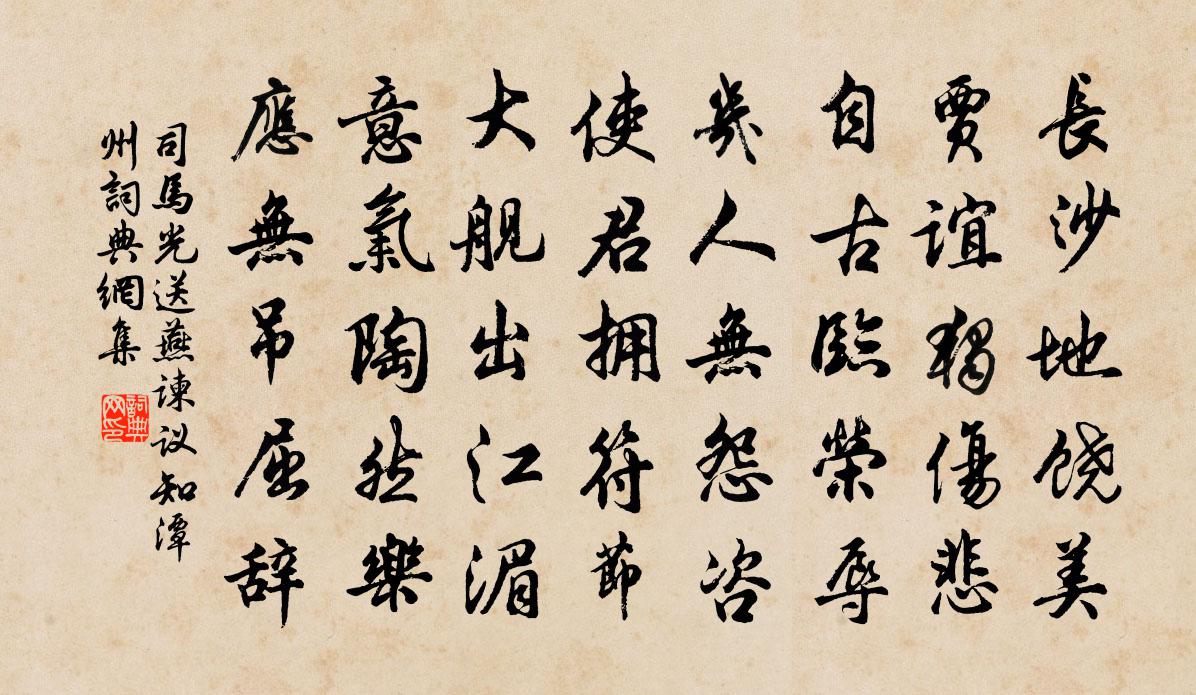 長沙地饶美
賈誼獨傷悲
自古臨榮辱
幾人無怨咨
使君拥符節
大舰出江湄
意氣陶然樂
應無吊屈辞
司馬光送燕諫议知潭
州詞典網集
詞典
网印